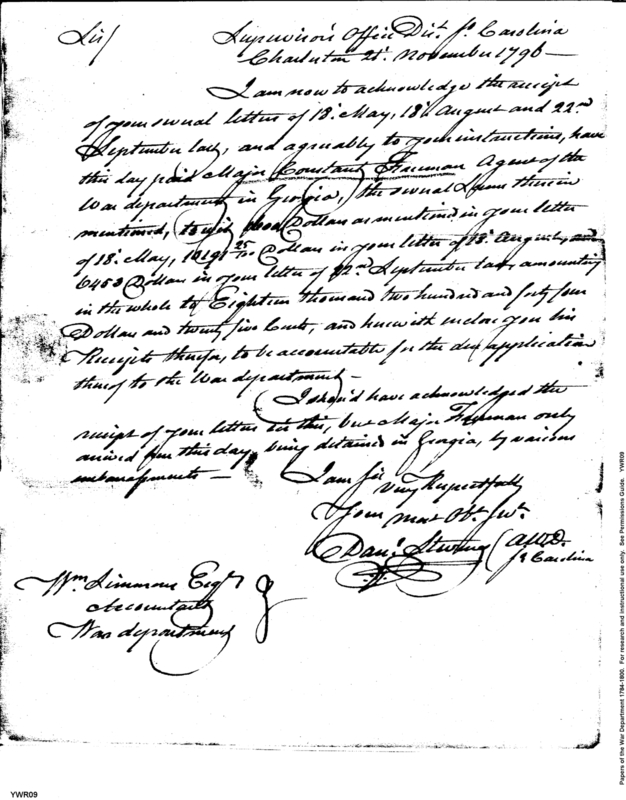 Sir/ Supervisor's Office Dist. So. Carolina
Charleston 21st. November 1796 —
I am now to acknowledge the receipt
of your several letters of 18th. May, 18th. August and 22nd.
September last, and agreeably to your instructions, have
this day paid Major Constant Freeman Agent of the
War department in Georgia, the several Sums therein
mentioned, to wit Dollars as mentioned in your letter
of 18th. May, 25/100 Dollars in your letter of 18th. August, and
6453 Dollars in your letter of 22nd. September last, amounting
in the whole to Eighteen thousand two hundred and forty four
Dollars and twenty five Cents, and herewith inclose you his
Receipts therefor, to be accountable for the due application
thereof to the War department —
I should have acknowledged the
receipt of your letters ere this, but Major Freeman only
arrived here this day, being detained in Georgia, by various
embarrassments —
I am Sir
Very Respectfully
Your most Obt. Svt.
Danl. Stevens
So Carolina
Wm. Simmons Esqr
Accountant
War department
YWR09
Papers of the War Department 1784-1800. For research and instructional use only. See Permissions Guide. YWR09